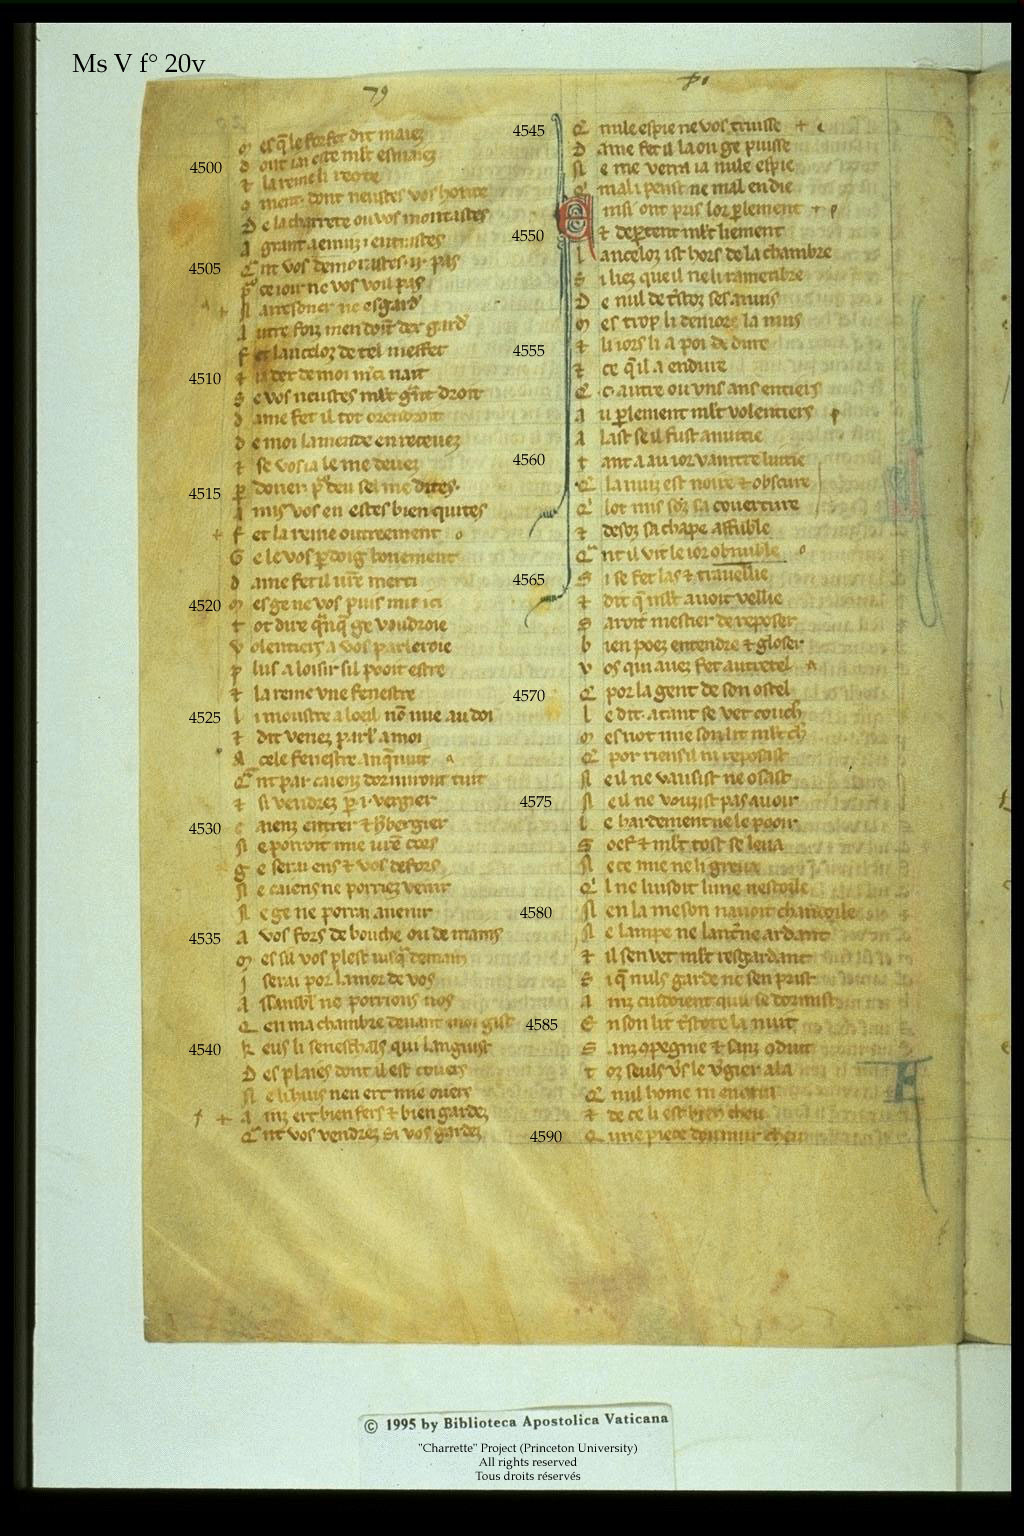 Ms V f° 20v
79
4500
4505
4510
4515
4520
4525
4530
4535
4540
M es q̄ le forfet dit maiez
d ont iai este mlt esmaiez
t la reine li reote
c oment dont neustes vos honte
D e la charrete ou vos montastes
A grant enuiz i entrastes
Q nt vos demorastes .ij. pas
p ce ior ne vos voil pas
N
A utre foiz men doint dex gard
f et lanceloz de tel meffet
t ia dex de moi merci nait
S e vos neustes mlt grant droit
d ame fet il tot orendroit
d e moi lamende en receuez
t se vos ia le me deuez
p doner por deu sel me dites
A mis vos en estes bien quites
f et la reine outreement
G e le vos pdoig bonement
d ame fet il vre merci
M es ge ne vos puis mie ici
t ot dire q̄nq̄ ge voudroie
v olentiers a vos parleroie
p lus a loisir sil pooit estre
t la reine vne fenestre
l i moustre a loeil nō mie au doi
t dit venez parl' a moi
A cele fenestre anq̄nuit
Q nt par caienz dormiront tuit
t si vendrez p .i. vergier
c aienz entrer t h'bergier
N e porroit mie vre cors
g e serai ens t vos defors
N e caiens ne porriez venir
N e ge ne porrai auenir
A vos fors de bouche ou de mains
M es sil vos plest iusq̄ demain
J serai por lamor de vos
A ssanbl' ne porrions nos
Q en ma chambre deuant moi gist
k eus li seneschals qui languist
D es plaies dont il est couers
N e lihuis nen ert mie ouers
A inz ert bien fers t bien gardez
Q nt vos vendrez si vos gardez
4545
4550
4555
4560
4565
4570
4575
4580
4585
4590
Q nule espie ne vos truisse
D ame fet il la ou ge puisse
N e me verra ia nule espie
Q mal i penst ne mal en die
A insi ont pris lor plement
t deptent mlt liement
l anceloz ist hors de la chambre
S i liez que il ne li ramenbre
D e nul de tstoz ses anuis
M es trop li demore la nuis
t li iors li a poi de dure
t ce q̄ il a endure
Q c autre ou vns ans entiers
A u plement mlt volentiers
A last se il fust anuitie
t ant a au ior vaintre luitie
Q la nuiz est noire t obscure
Q lot mis soz sa couerture
t desoz sa chape affuble
Q nt il vit le ior obnuble
S i se fet las t trauellie
t dit q̄ mlt auoit vellie
S auoit mestier de reposer
b ien poez entendre t gloser
v os qui auez fet autretel
Q por la gent de son ostel
l e dit. atant se vet couch
M es not mie son lit mlt ch
Q por riens il ni reposast
N e il ne vausist ne osast
N e il ne vouzist pas auoir
l e hardement ne le pooir
S oef t mlt tost se leua
N e ce mie ne li greua
Q l ne luisoit lune nestoile
N en la meson nauoit chandoile
N e lampe ne lant'ne ardant
t il sen vet mlt resgardant
S i q̄ nuls garde ne sen prist
A inz cuidoient quil se dormist
E n son lit tstote la nuit
S anz cpegnie t sanz cduit
t oz seuls vs le v'gier ala
Q nul home ni encontra
t de ce li est bien cheu
Q une piece du mur cheu
© 1995 by Biblioteca Apostolica Vaticana
"Charrette" Project (Princeton University)
All rights reserved
Tous droits réservés